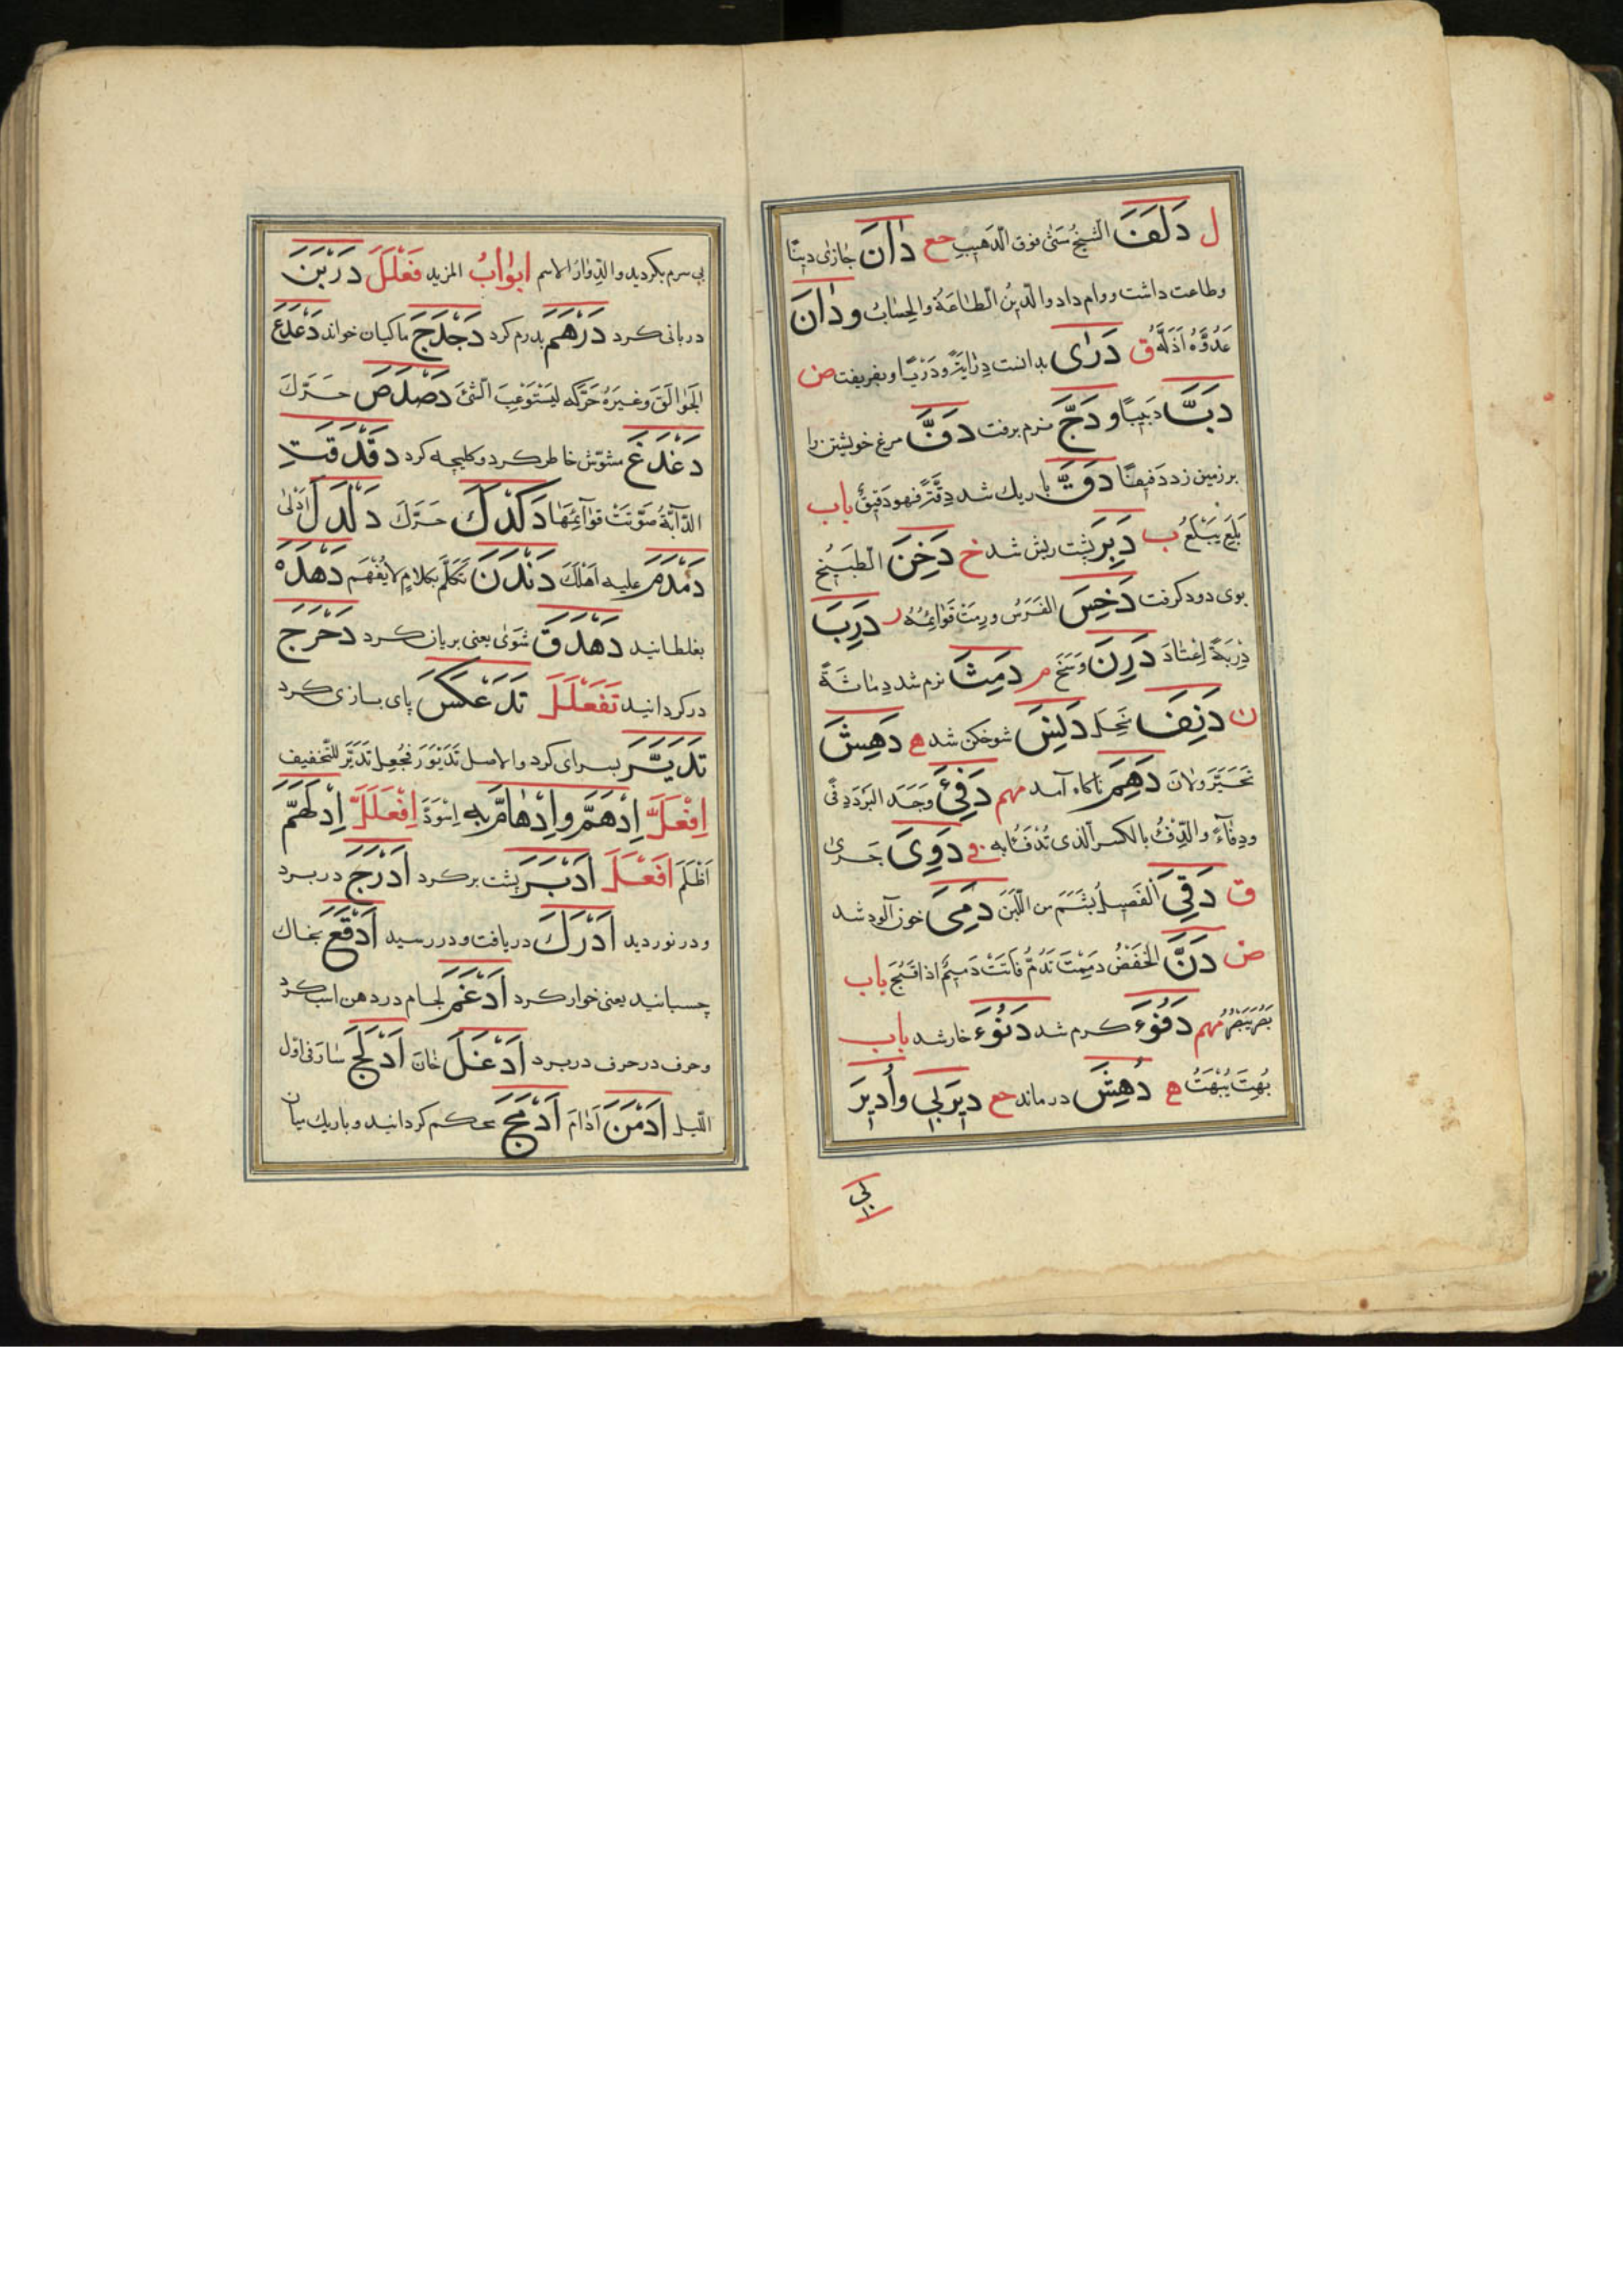 ل دَلَفَ الشیخُ مَشیٰ فوق الدَهیبِ جع دٰانَ جٰازیٰ دینًا
وطاعت داشت ووام داد والدینُ الطاعَةُ والحِسٰابُ ودٰانَ
عَدُوَّهُ اَذَلَّهُ ق دَرٰی بدانست دِرٰایَةً ودَرْیًا وبفریفت ض
دَبَّ دَبیبًا ودَجَّ نرم برفت دَفَّ مرغ خویشتن را
بر زمین زد دَفیفًا دَقَّ باریك شد دِقَّةً فهو دَقیقٌ باب
بَلِعَ یَبْلَعُ ب دَبِرَ پشت ریش شد خ دَخِنَ الطَبیخُ
بوی دود کرفت دَخِسَ الفَرَسُ ورِمَتْ قَوٰائِمُهُ ر دَرِبَ
دِرْبَةً اِعْتٰادَ دَرِنَ وَسَخَ م دَمِثَ نرم شد دِمٰاثَةً
ن دَنِفَ نَحِلَ دَنِسَ شوخکن شد ه دَهِشَ
تَحَیَّرَ ولانَ دَهِمَ ناکاه آمد مهم دَفِئَ وَجَدَ البَرْدَ دِفْ
ودِفٰاءً والدِّفْءُ بالکسر الذی تُدْفَئُا به فی دَوِیَ جَریٰ
ق دَقِیَ الفَصیلُ بَشَمَ من اللَّبَن دَمِیَ خون آلود شد
ض دَنَّ الخَفَضُ دَمِمْتَ تَدُمُّ فانتَ دَمیمٌ اذا قَبُحَ باب
بَصُرَ یَبْصُرُ مهم دَفُوءَ کرم شد دَنُوءَ خار شد باب
بُهِتَ یُبْهَتُ ه دُهِشَ در ماند جع دیرَ بی واُدیرَ
بی
بی سرم بکردید والدِوٰارُ الاسم ابوٰابُ المزید فَعْلَلَ دَرْبَنَ
دربانی کرد دَرْهَمَ بدرم کرد دَجْدَجَ ماکیان خواند دَعْدَعَ
الجَوٰالَقَ وغیرَهُ حَرَّکَه لِیَسْتَوْعِبَ الشئَ دَصْدَصَ حَرَّكَ
دَغْدَغَ مشوّش خاطر کرد وکلیچه کرد دَقْدَقَتِ
الدّآبَّةُ صَوَّتَتْ قوٰآئِمُهٰا دَکْدَكَ حَرَّكَ دَلْدَلَ اَدْلیٰ
دَمْدَمَ علیه اَهْلَكَ دَنْدَنَ تَکَلَّمَ بکلامٍ لایُفْهَم دَهْدَهَ
بغلطانید دَهْدَقَ شَوَیٰ یعنی بریان کرد دَحْرَجَ
در کردانید تَفَعْلَلَ تَدَعْکَسَ پای بازی کرد
تَدَیَّرَ بسرای کرد والاصل تَدَیْوَرَ فجُعِل تَدَیَّرَ للتّخفیف
اِفْعَلَّ اِدْهَمَّ واِدْهٰامَّ به اِسْوَدَّ اِفْعَلَلَّ اِدْلَهَمَّ
اَظْلَمَ اَفْعَلَ اَدْبَرَ پشت بر کرد اَدْرَجَ در برد
ودر نوردید اَدْرَكَ دریافت ودر رسید اَدْقَعَ بخاك
چسبانید یعنی خوار کرد اَدْغَمَ لجام در دهن اسب کرد
وحرف در حرف در برد اَدْغَلَ خٰانَ اَدْلَجَ سٰارَ فی اوّل
اللّیل اَدْمَنَ اَدٰامَ اَدْمَجَ محکم کردانید وباریك میان